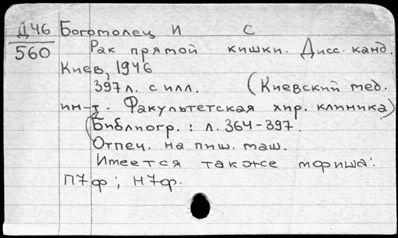 Д46 Боготолец И С
560 Рак прямой кишки. Дисс. канд.
Киев, 1946
397л. с илл. (Киевский мед.
ин-т. Факультетская хир. клиника)
(Библиогр.: л. 364-397.
Отпеч. на пиш. маш.
Имеется также мфиша:
П7ф; Н7ф.